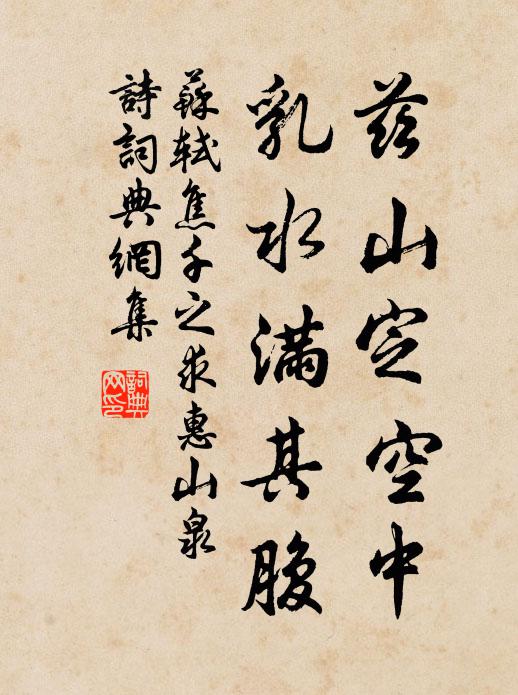 茲山定空中
乳水滿其腹
蘇軾焦千之求惠山泉
詩詞典網集
詞典網印